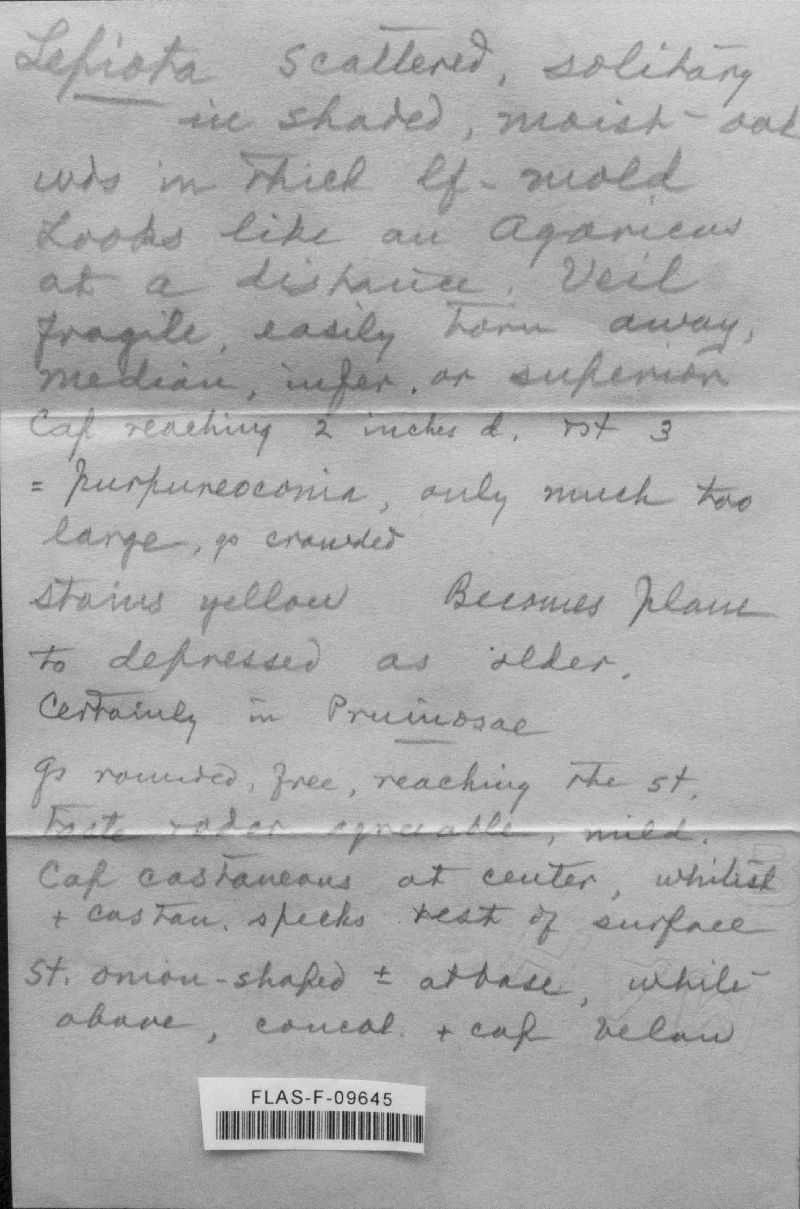 Lepiota scattered, solitary
in shaded, moist - oak
wds in thick lf-mold
Looks like an Agaricus
at a distance. Veil
fragile, easily torn away,
median, infer. or superior
Cap reaching 2 inches d. st 3
= purpureoconia, only much too
large, gs crowded
Stains yellow Becomes plane
to depressed as older.
Certainly in Pruinosae
gs rounded, free, reaching the st.
Taste + odor agreeable, mild.
Cap castaneous at center, whitish
+ castan. specks rest of surface
St. onion-shaped ± at base, white
above, concol. + cap below
FLAS-F-09645